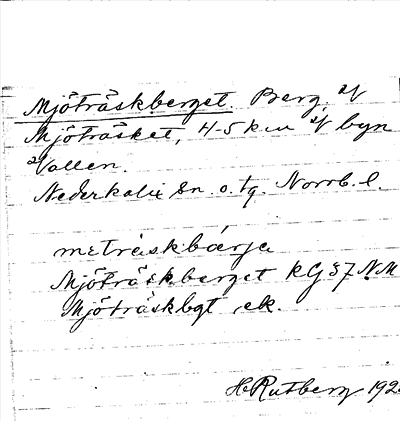 Mjöträskberget. Berg. v
Mjöträsket, 4-5 km v byn
Vallen.
Nederkalix sn. o. tg. Norrb. l.
metraskbärja
Mjöträskberget KG 37 NM
Mjöträskbgt ek.
H Rutberg 192